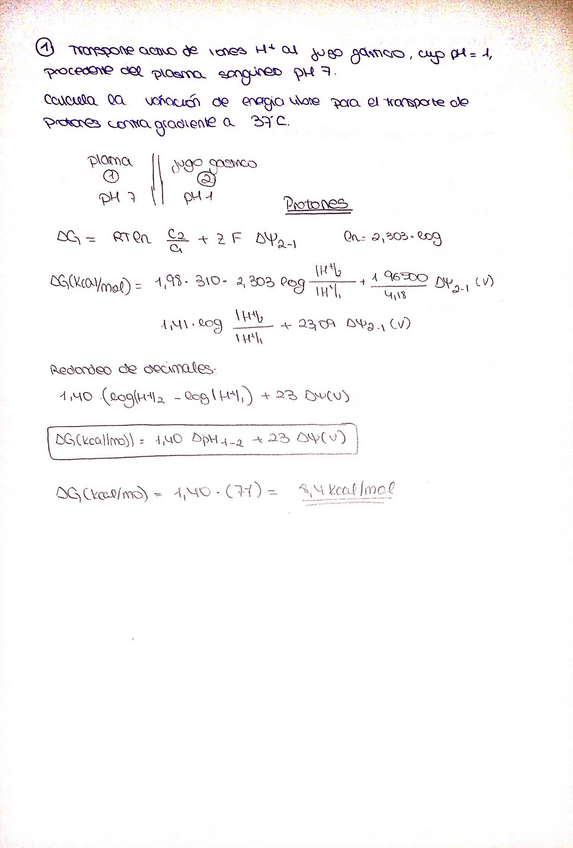 ① Transporte activo de iones H⁺ al jugo gástrico, cuyo pH = 1,
procedente del plasma sanguíneo pH 7.
Calcula la variación de energía libre para el transporte de
protones contra gradiente a 37°C.
plasma || jugo gástrico
① ②
pH 7 pH 1
Protones
ΔG = RT ln C₂/C₁ + Z F ΔΨ₂₋₁ ln = 2,303 · log
ΔG (Kcal/mol) = 1,98 · 310 · 2,303 log |H⁺|₂/|H⁺|₁ + 1 96500/4,18 ΔΨ₂₋₁ (V)
1,41 · log |H⁺|₂/|H⁺|₁ + 23,09 ΔΨ₂₋₁ (V)
Redondeo de decimales.
1,40 (log|H⁺|₂ - log|H⁺|₁) + 23 ΔΨ(V)
ΔG (kcal/mol) = 1,40 ΔpH₁₋₂ + 23 ΔΨ(V)
ΔG (kcal/mol) = 1,40 · (7-1) = 8,4 kcal/mol